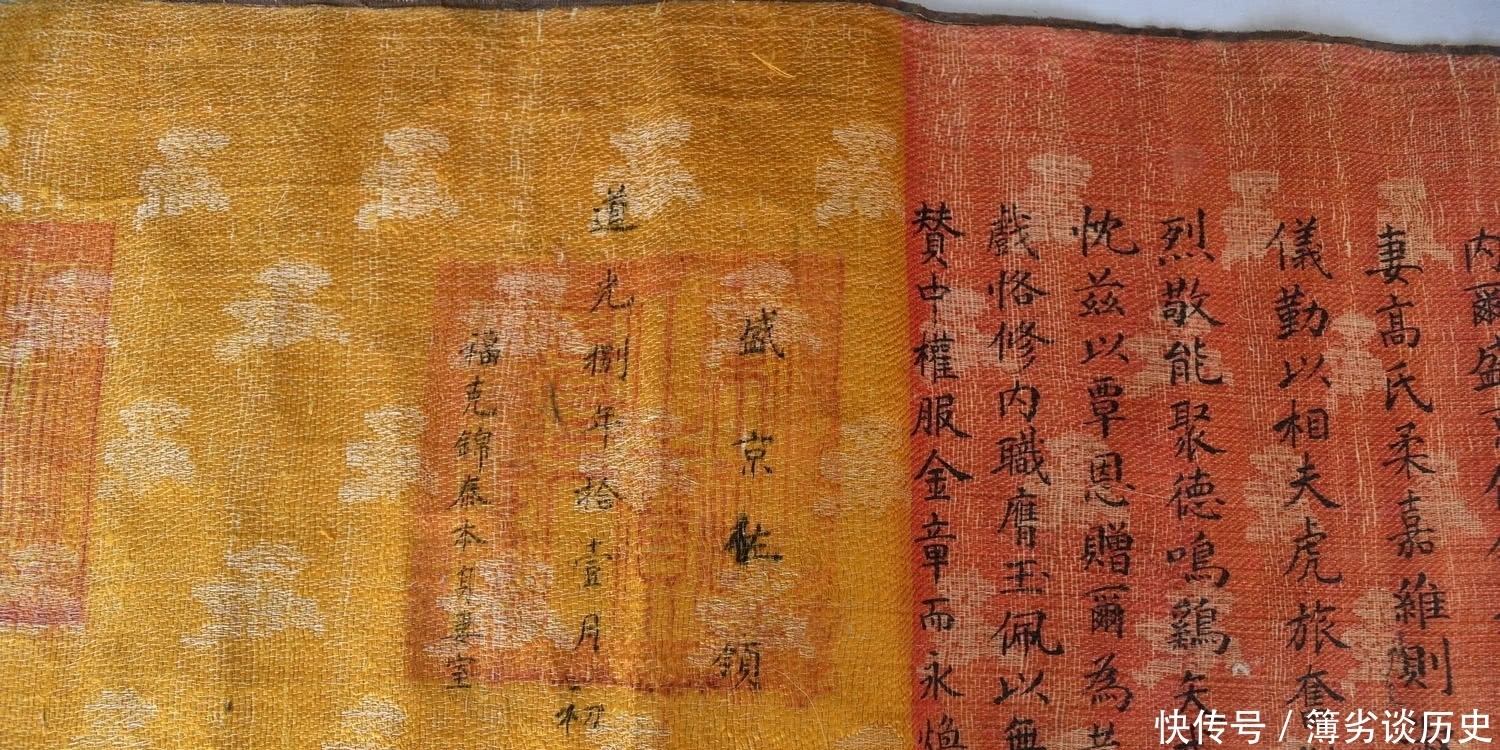 内爾盛京
妻高氏柔嘉維則
儀勤以相夫虎旅奮
烈敬能聚德鳴鷄矢
忱兹以覃恩贈爾為
戲恪修内職膺玉佩以無
贊中權服金章而永焕
盛京佐領
道光捌年拾壹月初
福克錦本身妻室
快传号 / 簿劣谈历史